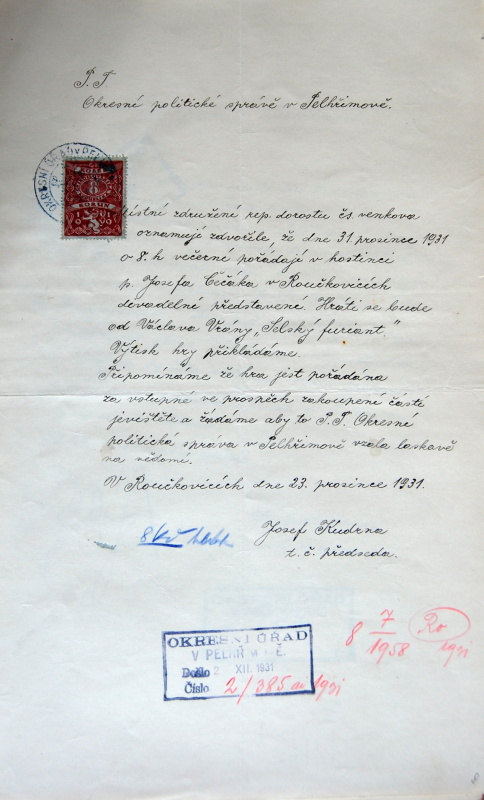 P. T.
Okresní politické správě v Pelhřimově.
OKRESNÍ ÚŘAD V PEL
8
KORUN
Místní združření rep. dorostu čs. venkova
oznamují zdvořile, že dne 31. prosince 1931
o 8. h večerné pořádají v hostinci
p. Josefa Čečáka v Roučkovicích
divadelné představené. Hráti se bude
od Václava Vrány „Selský furiant."
Výtisk hry přikládáme.
Připomínáme že hra jest pořádána
za vstupné ve prospěch zakoupení částé
jevištěte a žádáme aby to P. T. Okresné
politická správa v Pelhřimově vzala laskavě
na vědomí.
V Roučkovicích dne 23. prosince 1931.
Josef Kudrna
t. č. předseda.
8 Kč
8 7/1958 Ro
1931
OKRESNÍ ÚŘAD
V PELHŘIMOVĚ.
Došlo 2 XII. 1931
Číslo 2/385 ai 1931